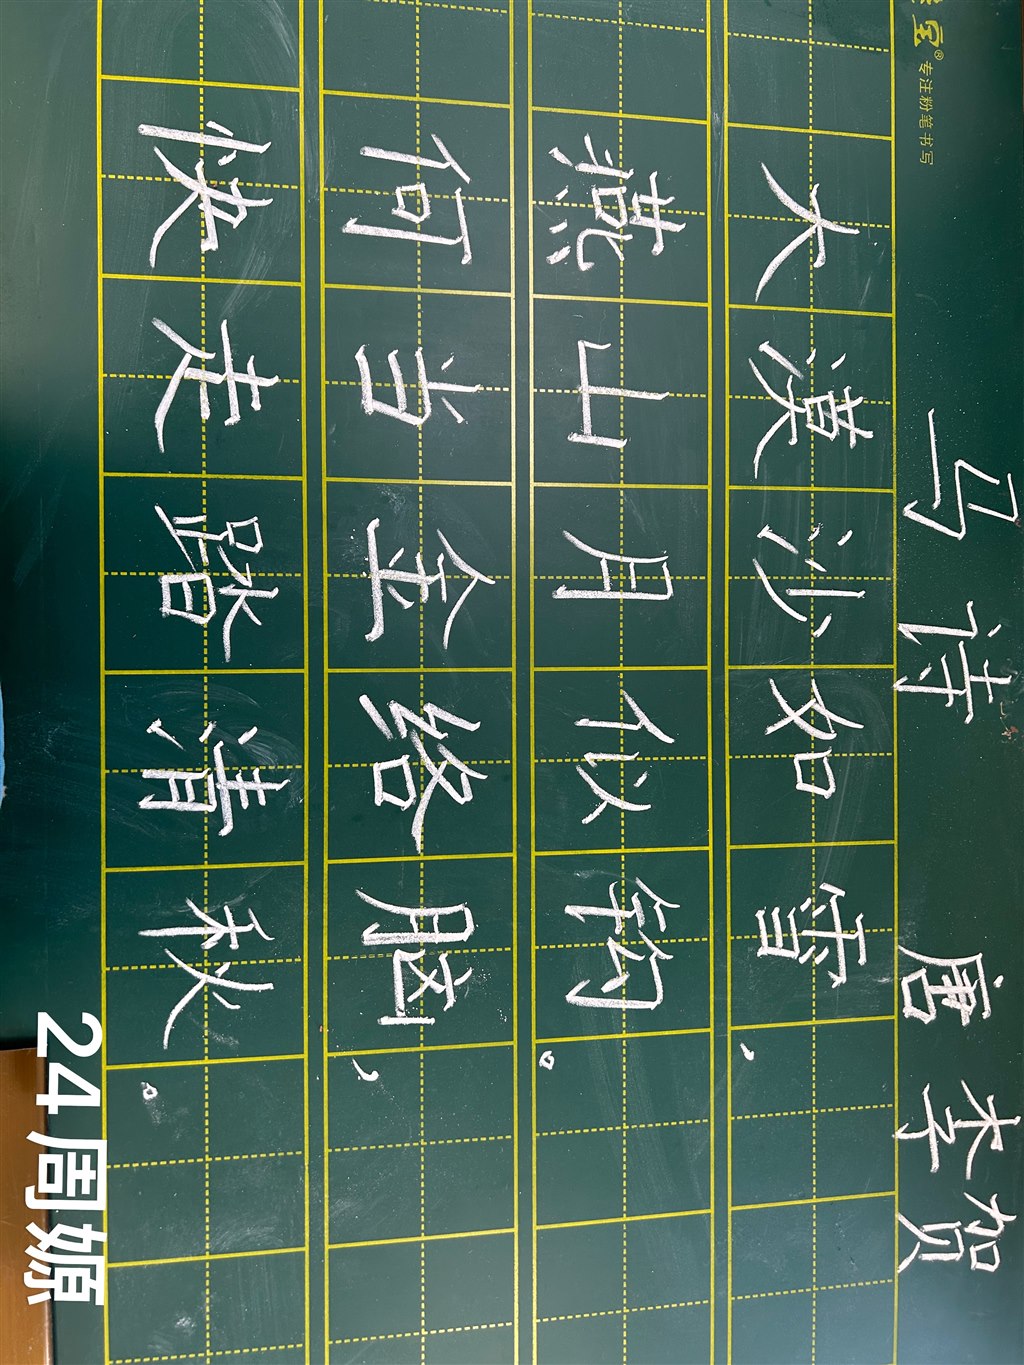 专注粉笔书写
马诗
唐 李贺
大漠沙如雪，
燕山月似钩。
何当金络脑，
快走踏清秋。
24周嫄